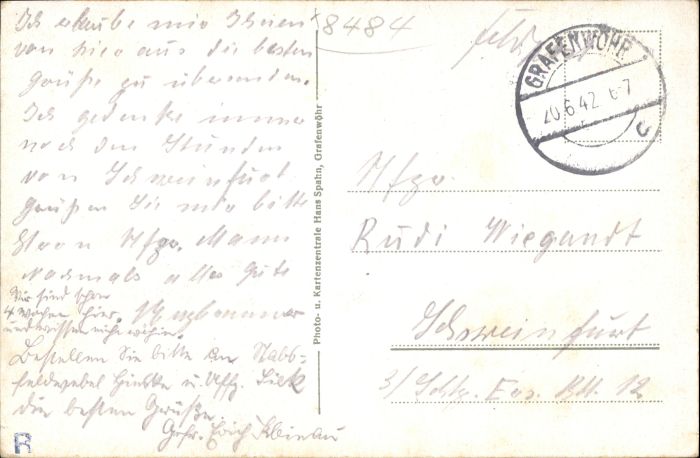 Ich erlaube mir Ihnen
von hier aus die besten
Grüße zu übersenden.
Ich gedenke immer
noch den Stunden
von Schweinfurt
Grüßen Sie mir bitte
Ufgo. Mann
Nochmals alles Gute
Wir sind schon
4 Wochen hier,
und wissen nicht wohin.
Bestellen Sie bitte an Stabs=
feldwebel u. Uffz.
die besten Grüße.
Gefr. Erich
8484
Photo- u. Kartenzentrale Hans Spahn, Grafenwöhr
GRAFENWÖHR
20.6.42. 6-7
c
Ufgo.
Rudi Wiegandt
Schweinfurt
3/ Schtz. Ers. Btl. 12
R